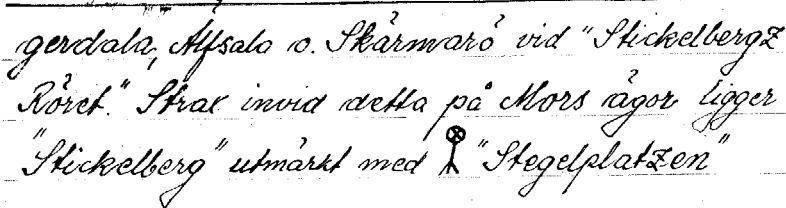 gerdala, Älfsala o. Skärmarö vid "Stickelbergz
Röret." Strax invid detta på Mors ägor ligger
"Stickelberg" utmärkt med "Stegelplatzen"